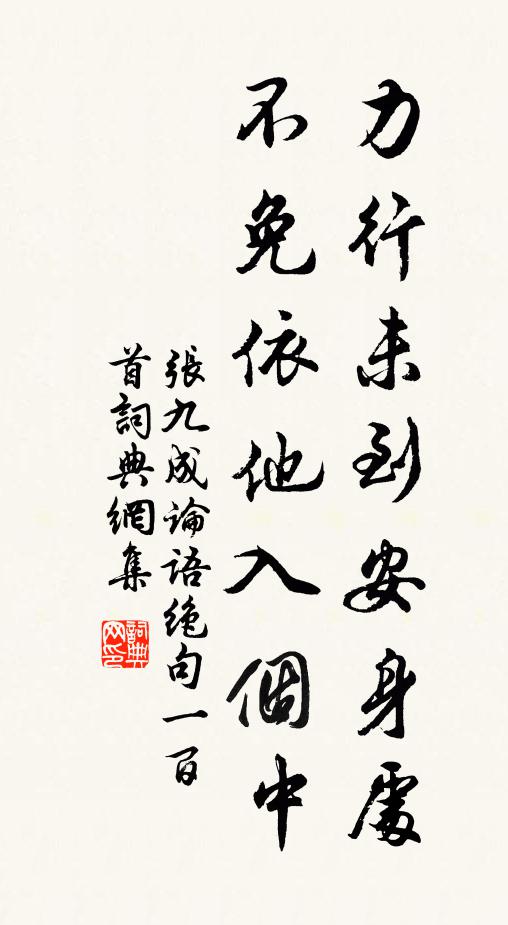 力行未到安身處
不免依他入個中
張九成論語絕句一百
首詞典網集
詞典网印